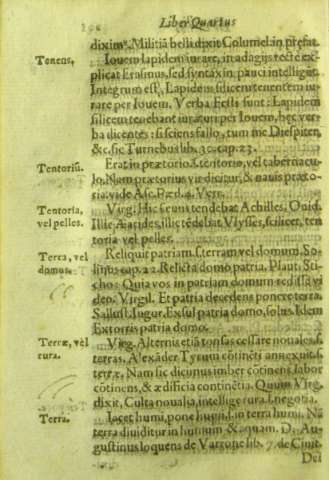 Liber Quartus
dixim⁹. Militiã belli dixit Columel. in præfat.
Tenens, Iouem lapidem iurare, in adagijs recte ex-
plicat Erasmus, sed syntaxin pauci intelligũt.
Integrum est, Lapidem silicem tenentem iu-
rare per Iouem. Verba Festi sunt: Lapidem
silicem tenebant iuraturi per Iouem, hęc ver-
ba dicentes: si sciens fallo, tum me Diespiter,
&c. sic Turnebus lib. 30. cap. 23.
Tentoriũ. Erat in prætorio. s. tentorio, vel tabernacu-
lo. Nam prætorius vir dicitur, & nauis præto-
ria. vide Asc. Pæd. 4. Verr.
Tentoria, vel pelles. Virg. Hic sæuus tendebat Achilles. Ouid.
Illic Æacides, illic tẽdebat Vlysses, scilicet, ten
toria vel pelles.
Terra, vel domus. Reliquit patriam. s. terram vel domum. So-
linus cap. 22. Relicta domo patria. Plaut. Sti-
cho: Quia vos in patriam domum redissã vi
deo. Virgil. Et patria decedens ponere terra.
Sallust. Iugur. Exsul patria domo, solus. Idem
Extorris patria domo.
Terræ, vel rura. Virg. Alternis etiã tonsas cessare nouales, s.
terras. Alexãder Tyrum cõtinẽti annexuit. s.
terræ. Nam sic dicimus imber cõtinens, labor
cõtinens, & ædificia continẽtia. Quum Virg.
dixit, Culta noualia, intellige rura. l. negotia.
Terra. Iacet humi, pone humi, i. in terra humi. Nã
terra diuiditur in humum & aquam. D. Au-
gustinus loquens de Varrone lib. 7. de Ciuit.
Dei